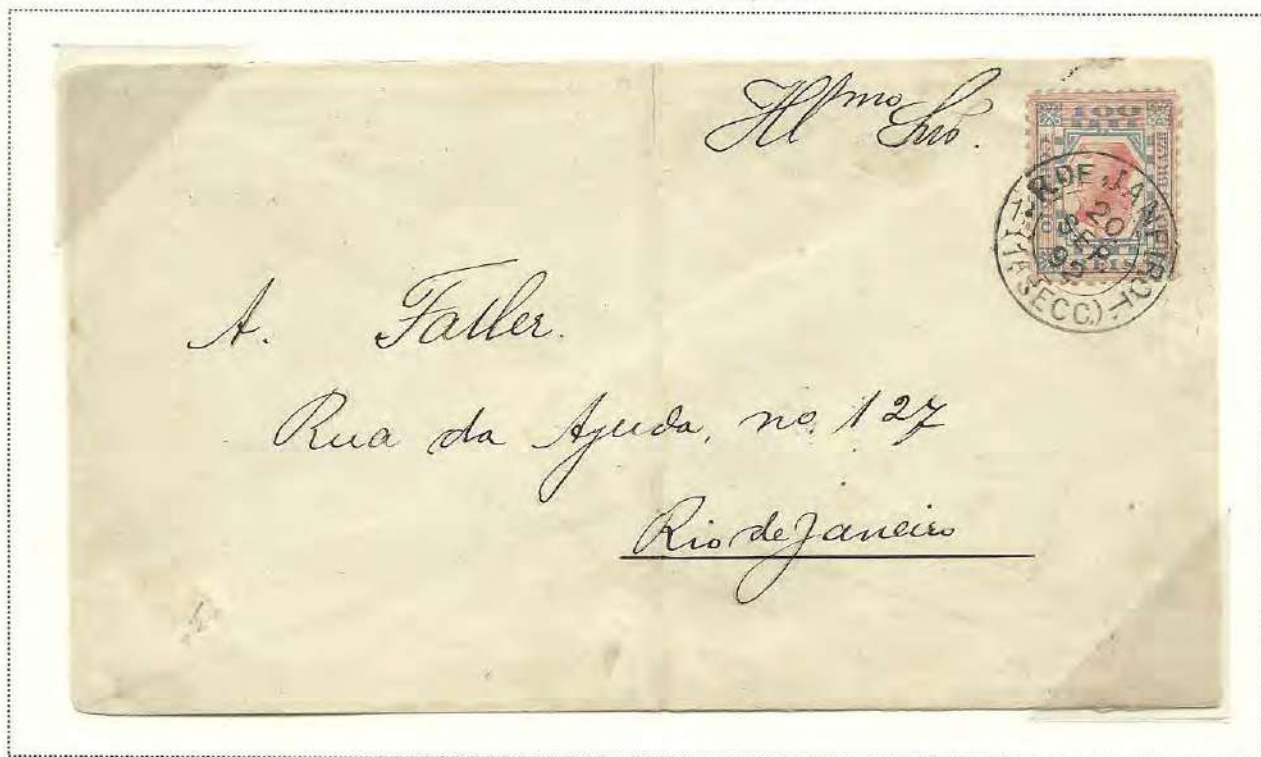 Illmo Snro.
100
R. DE JANEIRO
20
SEP
92
(1ª SECC.)
A. Faller.
Rua da Ajuda, no. 127
Rio de Janeiro